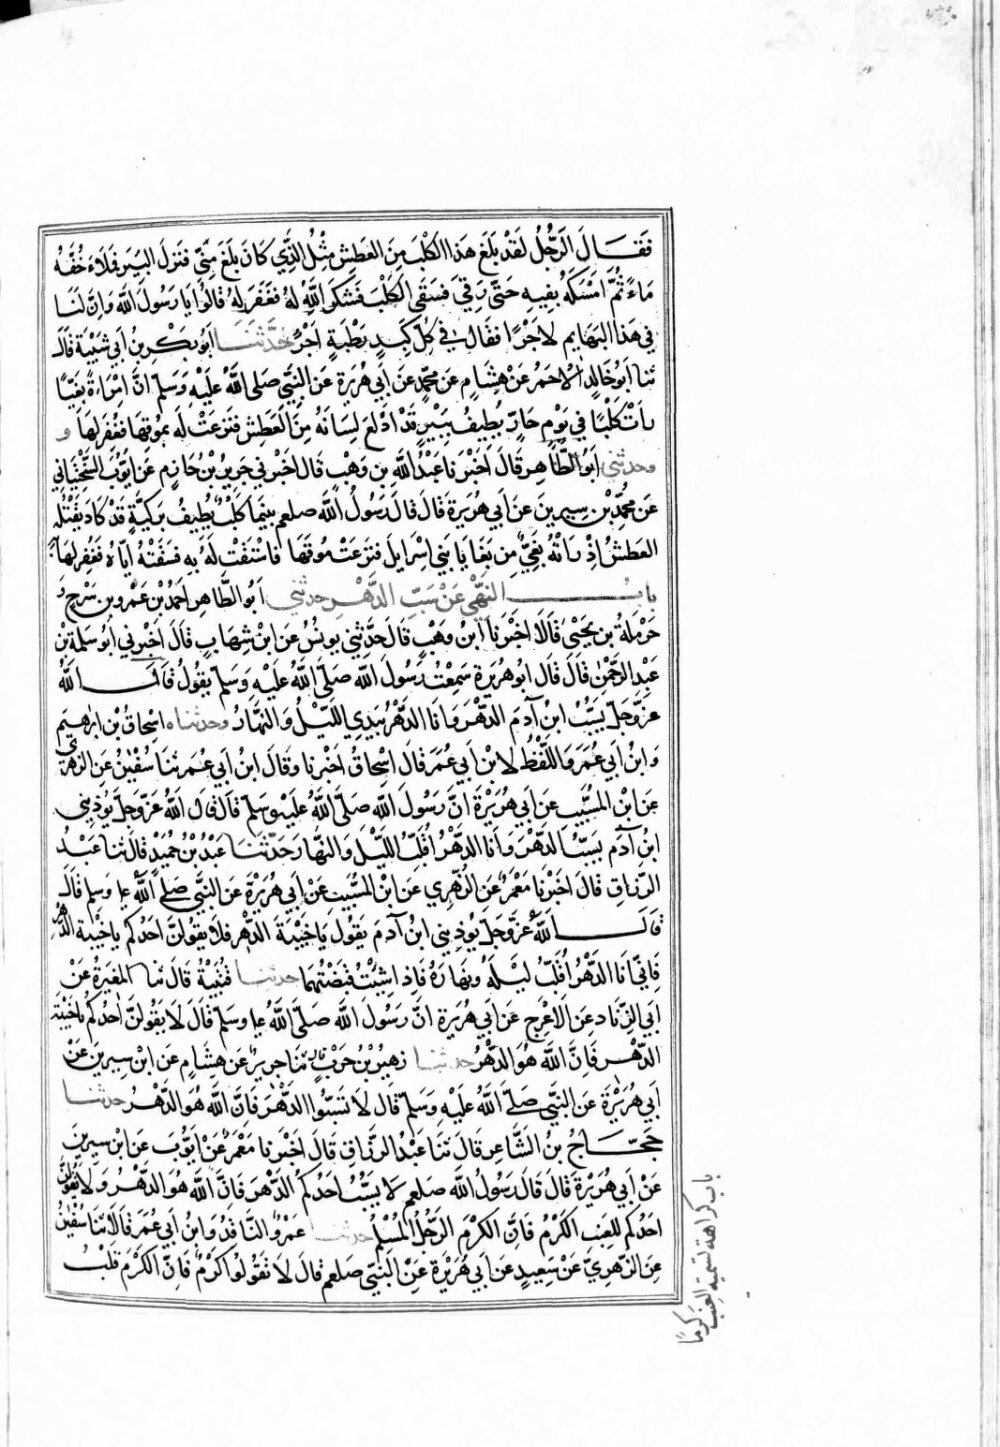 فَقَالَ الرَّجُلُ لَقَدْ بَلَغَ هَذَا الْكَلْبَ مِنَ الْعَطَشِ مِثْلُ الَّذِي كَانَ بَلَغَ مِنِّي فَنَزَلَ الْبِيرَ فَمَلَاءَ خُفَّهُ
مَاءً ثُمَّ امْسَكَهُ بِفِيهِ حَتَّى رَقِيَ فَسَقَى الْكَلْبَ فَشَكَرَ اللَّهُ لَهُ فَغَفَرَ لَهُ قَالُوا يَا رَسُولَ اللَّهِ وَاِنَّ لَنَا
فِي هَذَا الْبَهَايِمِ لَاَجْرًا فَقَالَ فِي كُلِّ كَبِدٍ رَطْبَةٍ اَجْرٌ حَدَّثَنَا اَبُو بَكْرِ بْنُ اَبِي شَيْبَةَ قَالَ
ثنا اَبُو خَالِدٍ الْاَحْمَرُ عَنْ هِشَامٍ عَنْ مُحَمَّدٍ عَنْ اَبِي هُرَيْرَةَ عَنِ النَّبِيِّ صَلَّى اللَّهُ عَلَيْهِ وَسَلَّمَ اَنَّ امْرَاَةً بَغِيًّا
رَاَتْ كَلْبًا فِي يَوْمٍ حَارٍّ يُطِيفُ بِبِيْرٍ قَدْ اَدْلَعَ لِسَانَهُ مِنَ الْعَطَشِ فَنَزَعَتْ لَهُ بِمُوقِهَا فَغُفِرَ لَهَا و
وحدثني اَبُو الطَّاهِرِ قَالَ اَخْبَرَنَا عَبْدُ اللَّهِ بن وَهْبٍ قَالَ اَخْبَرَنِي جَرِيرُ بْنُ حَازِمٍ عَنْ اَيُّوبَ السَّخْتِيَانِي
عَنْ مُحَمَّدِ بْنِ سِيرِينَ عَنْ اَبِي هُرَيْرَةَ قَالَ قَالَ رَسُولُ اللَّهِ صلعم بَيْنَمَا كَلْبٌ يُطِيفُ بِرَكِيَّةٍ قَدْ كَادَ يَقْتُلُهُ
الْعَطَشُ اِذْ رَاَتْهُ بَغِيٌّ مِنْ بَغَايَا بَنِي اِسْرَايِلَ فَنَزَعَتْ مُوقَهَا فَاسْتَقَتْ لَهُ بِهِ فَسَقَتْهُ اِيَّاهُ فَغُفِرَ لَهَا
بَابُ النَّهْيِ عَنْ سَبِّ الدَّهْرِ حدثني اَبُو الطَّاهِرِ اَحْمَدُ بْنُ عَمْرِو بْنِ سَرْحٍ وَ
حَرْمَلَةُ بن يَحْيَى قَالَا اَخْبَرَنَا ابْنُ وَهْبٍ قَالَ حَدَّثَنِي يُونُسُ عَنِ ابْنِ شِهَابٍ قَالَ اَخْبَرَنِي اَبُو سَلَمَةَ بْنُ
عَبْدِ الرَّحْمٰنِ قَالَ قَالَ اَبُو هُرَيْرَةَ سَمِعْتُ رَسُولَ اللَّهِ صَلَّى اللَّهُ عَلَيْهِ وَسَلَّمَ يَقُولُ قَالَ اللَّهُ
عَزَّ وَجَلَّ يَسُبُّ ابن آدَمَ الدَّهْرَ وَاَنَا الدَّهْرُ بِيَدِيَ اللَّيْلُ وَالنَّهَارُ وحدثناه اِسْحَاقُ بن اِبْرَاهِيمَ
وَابْنُ اَبِي عُمَرَ وَاللَّفْظُ لِابْنِ اَبِي عُمَرَ قَالَ اِسْحَاقُ اَخْبَرَنَا وَقَالَ ابن اَبِي عُمَرَ ثنا سُفْيٰنُ عَنِ الزُّهْرِي
عَنِ ابْنِ الْمُسَيَّبِ عَنْ اَبِي هُرَيْرَةَ اَنَّ رَسُولَ اللَّهِ صَلَّى اللَّهُ عَلَيْهِ وَسَلَّمَ قَالَ قَالَ اللَّهُ عَزَّ وَجَلَّ يُوذِينِي
ابْنُ آدَمَ يَسُبُّ الدَّهْرَ وَاَنَا الدَّهْرُ اُقَلِّبُ اللَّيْلَ وَالنَّهَارَ حَدَّثَنَا عَبْدُ بْنُ حُمَيْدٍ قَالَ ثنا عَبْدُ
الرَّزَاقِ قَالَ اَخْبَرَنَا مَعْمَرٌ عَنِ الزُّهْرِي عَنِ ابْنِ الْمُسَيَّبِ عَنْ اَبِي هُرَيْرَةَ عَنِ النَّبِيِّ صَلَّى اللَّهُ عليه وسلم قَالَ
قَالَ اللَّهُ عَزَّ وَجَلَّ يُوذِينِي ابن آدَمَ يَقُولُ يَا خَيْبَةَ الدَّهْرِ فَلَا يَقُولَنَّ اَحَدُكُمْ يَا خَيْبَةَ الدَّهْرِ
فَاِنِّي اَنَا الدَّهْرُ اُقَلِّبُ لَيْلَهُ وَنَهَارَهُ فَاِذَا شِئْتُ قَبَضْتُهُمَا حدثنا قُتَيْبَةُ قَالَ ثنا الْمُغِيرَةُ عَنْ
اَبِي الزِّنَادِ عَنِ الْاَعْرَجِ عَنْ اَبِي هُرَيْرَةَ اَنَّ رَسُولَ اللَّهِ صَلَّى اللَّهُ عليه وسلم قَالَ لَا يَقُولَنَّ اَحَدُكُمْ يَا خَيْبَةَ
الدَّهْرِ فَاِنَّ اللَّهَ هُوَ الدَّهْرُ حدثنا زُهَيْرُ بْنُ حَرْبٍ قال ثنا جَرِيرٌ عَنْ هِشَامٍ عَنِ ابْنِ سِيرِينَ عَنْ
اَبِي هُرَيْرَةَ عَنِ النَّبِيِّ صَلَّى اللَّهُ عَلَيْهِ وَسَلَّمَ قَالَ لَا تَسُبُّوا الدَّهْرَ فَاِنَّ اللَّهَ هُوَ الدَّهْرُ حدثنا
حَجَّاجُ بْنُ الشَّاعِرِ قَالَ ثَنَا عَبْدُ الرَّزَّاقِ قَالَ اَخْبَرَنَا مَعْمَرٌ عَنْ اَيُّوبَ عَنِ ابْنِ سِيرِينَ
عَنْ اَبِي هُرَيْرَةَ قَالَ قَالَ رَسُولُ اللَّهِ صلعم لَا يَسُبُّ اَحَدُكُمُ الدَّهْرَ فَاِنَّ اللَّهَ هُوَ الدَّهْرُ وَلَا يَقُولَنَّ
اَحَدُكُمْ لِلْعِنَبِ الْكَرْمُ فَاِنَّ الْكَرْمَ الرَّجُلُ الْمُسْلِمُ حدثنا عَمْرٌو النَّاقِدُ وَابن اَبِي عُمَرَ قَالَا ثَنَا سُفْيٰنُ
عَنِ الزُّهْرِيِّ عَنْ سَعِيدٍ عَنْ اَبِي هُرَيْرَةَ عَنِ النَّبِيِّ صلعم قَالَ لَا تَقُولُوا كَرْمٌ فَاِنَّ الْكَرْمَ قَلْبُ
باب كراهة تسمية العنب كرمًا